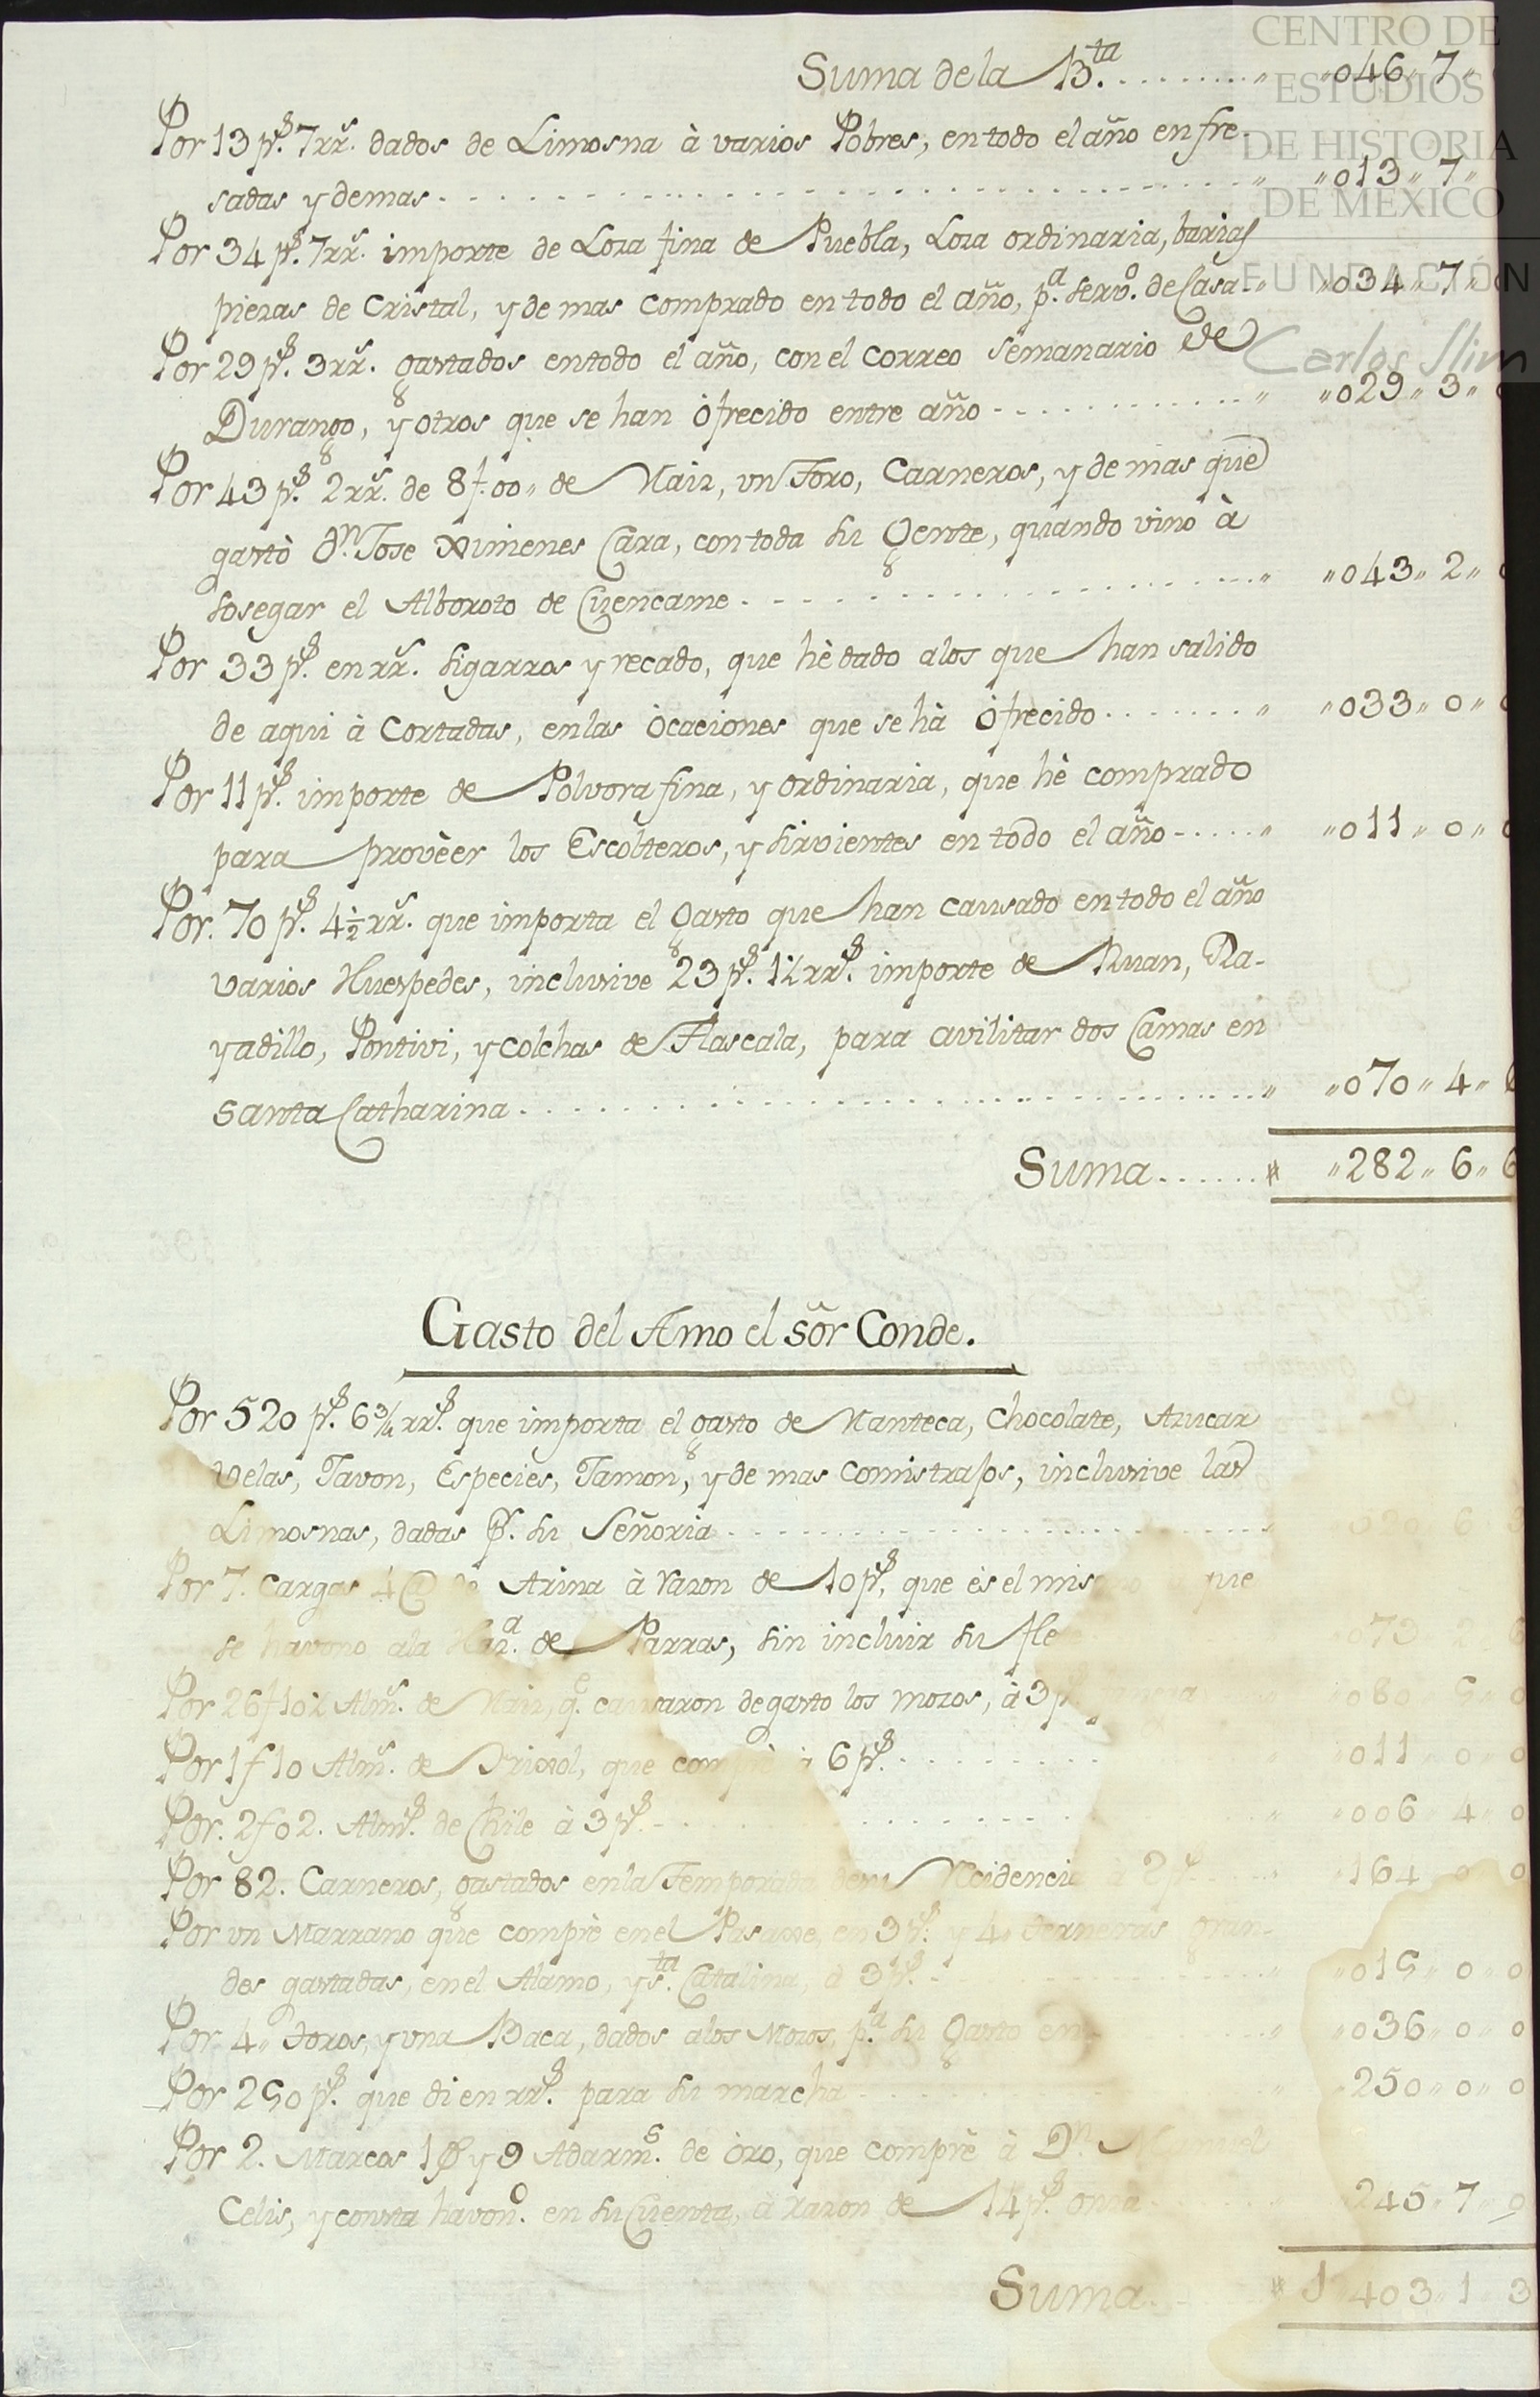 Suma de la B.ta ......... „ „046„ 7„
Por 13 p.s 7 rr.s dados de Limosna à varios Pobres, en todo el año en fre-
sadas y demas . - - - - - - - - - „ „013„ 7„
Por 34 p.s 7 rr.s importe de Loza fina de Puebla, Loza ordinaria, barias
piezas de Cristal, y de mas comprado en todo el año, p.a serv.o de Casa - „ „034„ 7„
Por 29 p.s 3 rr.s gastados en todo el año, con el Correo Semanario de
Durango, y otros que se han òfrecido entre año - - - - - - „ „029„ 3„
Por 43 p.s 2 rr.s de 8 f. 00„ de Maiz, un Toro, Carneros, y de mas que
gastò d.n Jose Ximenes Cara, con toda su Gente, quando vino à
sosegar el Alboroto de Cuencame . - - - - - - - „ „043„ 2„
Por 33 p.s en rr.s sigarros y recado, que hè dado a los que han salido
de aqui à Cortadas, en las òcaciones que se hà òfrecido . . . . . . . „ „033„ 0„
Por 11 p.s importe de Polvora fina, y ordinaria, que hè comprado
para provèer los Escolteros, y sirvientes en todo el año - . . . . „ „011„ 0„
Por. 70 p.s 4½ rr.s que importa el Gasto que han causado en todo el año
varios Huespedes, inclusive 23 p.s 1½ rr.s importe de Ruan, Ra-
yadillo, Pontivi, y colchas de Tlascala, para avilitar dos Camas en
Santa Catharina . . . . . . . . . . . . „ „070„ 4„ 6
Suma . . . . . . # „282„ 6„ 6
Gasto del Amo el señor Conde.
Por 520 p.s 6¾ rr.s que importa el gasto de Manteca, Chocolate, Azucar
Velas, Javon, Especies, Jamon, y de mas comistrajos, inclusive las
Limosnas, dadas p.r su Señoria - - - - - - - - 6
Por 7. Cargas 4 @ de Arina à razon de 10 p.s que ès el mismo que
se havono a la Haz.a de Parras, sin incluir su fle 073 2 6
Por 26 f 10½ Alm.s de Maiz, q.e causaron de gasto los mozos, à 3 p.s 080 5 0
Por 1 f 10 Alm.s de Frixol, que comprè à 6 p.s . - - - - „ „011„ 0„ 0
Por. 2 f 02. Alm.s de Chile à 3 p.s - - - - - - „ „006„ 4„ 0
Por 82. Carneros, gastados en la Temporada de su Recidencia à 2 p.s - - - 164 0 0
Por un Marrano que comprè en el Pasaxe, en 3 p.s y 4„ terneras gran-
des gastadas, en el Alamo, y s.ta Catalina, à 3 p.s - - - - „ „015„ 0„ 0
Por. 4„ toros, y una Baca, dados a los Mozos, p.a su Gasto en - - - „ „036„ 0„ 0
Por 250 p.s que di en rr.s para su marcha - - - - - „ 250„ 0„ 0
Por 2. Marcos 1 y 9 Adarm.s de òro, que comprè à D.n Manuel
Celis, y consta havon.o en su Cuenta, à razon de 14 p.s onza 245„ 7„ 0
Suma . - - - # 1 403„ 1„ 3
CENTRO DE
ESTUDIOS
DE HISTORIA
DE MÉXICO
FUNDACIÓN
Carlos Slim